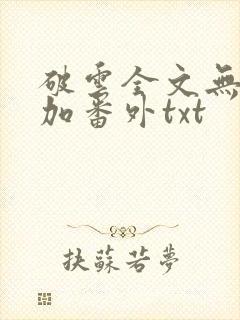 破雲全文無
加番外txt
扶蘇若夢